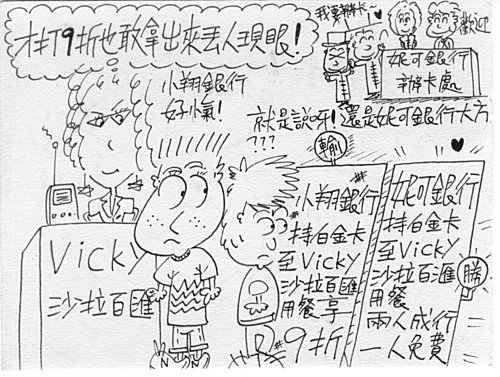 才打9折也敢拿出來丟人現眼!
我要辦卡~
歡迎
妮可銀行
辦卡處
小翔銀行
好小氣!
就是說呀!還是妮可銀行大方
???
輸
小翔銀行
持白金卡
至Vicky
沙拉百匯
用餐享
9折
妮可銀行
持白金卡
至Vicky
沙拉百匯
用餐
兩人成行
一人免費
勝
Vicky
沙拉百匯